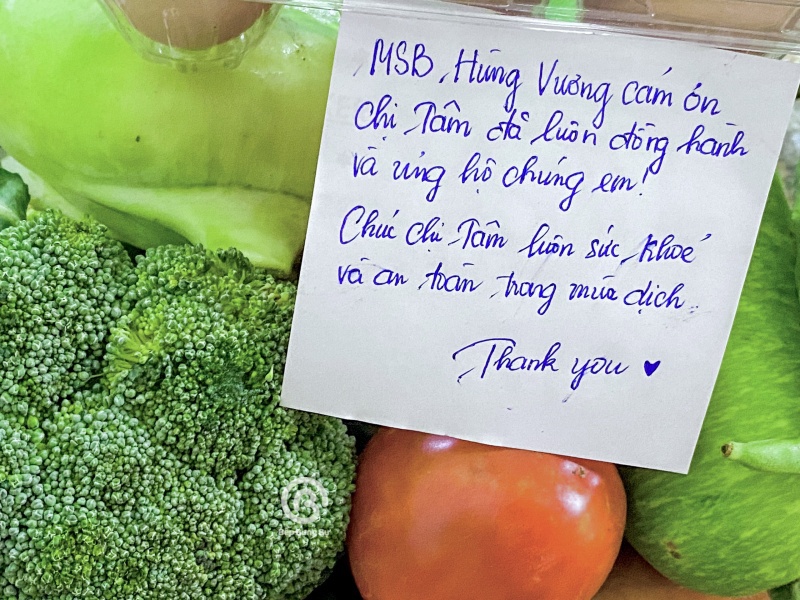 MSB Hùng Vương cám ơn
Chị Tâm đã luôn đồng hành
và ủng hộ chúng em!
Chúc Chị Tâm luôn sức khoẻ
và an toàn trong mùa dịch.
Thank you ♥